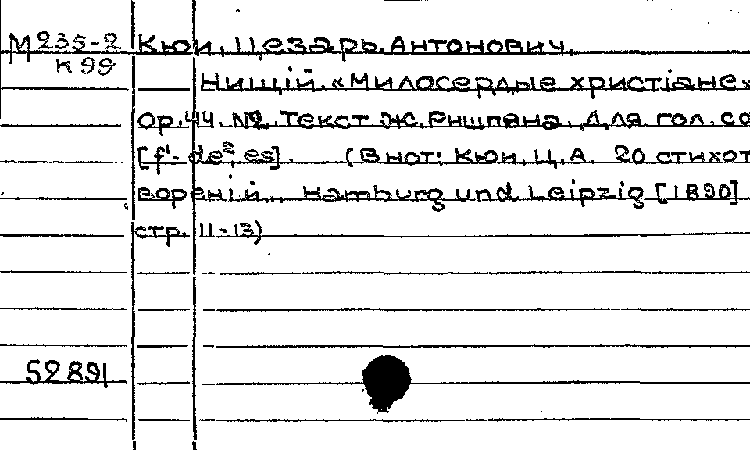 М 235-2 Кюи, Цезарь Антонович.
К 99
Нищій. «Милосердые христіане»
Ор. 44. №2. Текст Ж. Ришпена. Для гол. со
[f¹- des², es]. (В нот: Кюи, Ц.А. 20 стихот
вореній... Hamburg und Leipzig [1890]
стр. 11-13)
52891